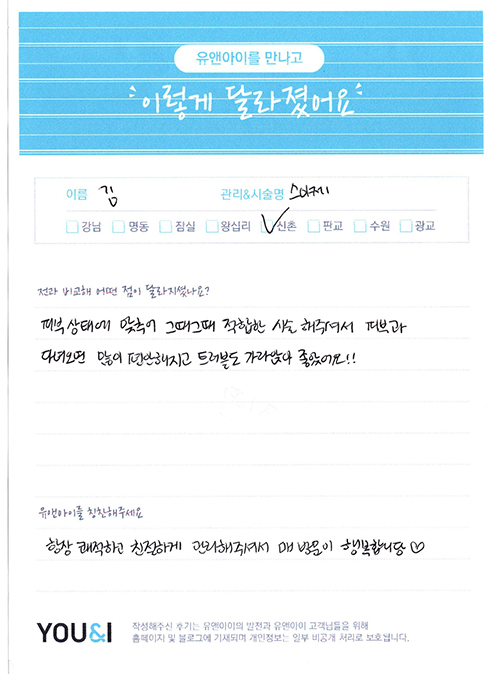 유앤아이를 만나고
이렇게 달라졌어요
이름 김 관리&시술명 스마케어
강남 명동 잠실 왕십리 신촌 판교 수원 광교
전과 비교해 어떤 점이 달라지셨나요?
피부상태에 맞춰 그때그때 적합한 시술 해주셔서 피부과
다녀오면 많이 편안해지고 트러블도 가라앉아 좋았어요!!
유앤아이를 칭찬해주세요
항상 쾌적하고 친절하게 관리해주셔서 매 방문이 행복합니당 ♡
YOU&I
작성해주신 후기는 유앤아이의 발전과 유앤아이 고객님들을 위해
홈페이지 및 블로그에 기재되며 개인정보는 일부 비공개 처리로 보호됩니다.